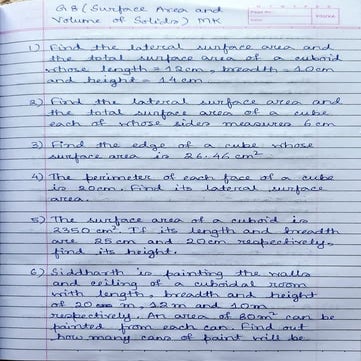 Q8 (Surface Area and
Volume of Solids) MK
1) Find the lateral surface area and
the total surface area of a cuboid
whose length = 12cm, breadth = 10cm
and height = 14cm
2) Find the lateral surface area and
the total surface area of a cube
each of whose sides measures 6cm
3) Find the edge of a cube whose
surface area is 26.46 cm²
4) The perimeter of each face of a cube
is 20cm. Find its lateral surface
area.
5) The surface area of a cuboid is
2350 cm². If its length and breadth
are 25cm and 20cm respectively,
find its height.
6) Siddharth is painting the walls
and ceiling of a cuboidal room
with length, breadth and height
of 20 m, 12 m and 10m
respectively. An area of 80m² can be
painted from each can. Find out
how many cans of paint will be